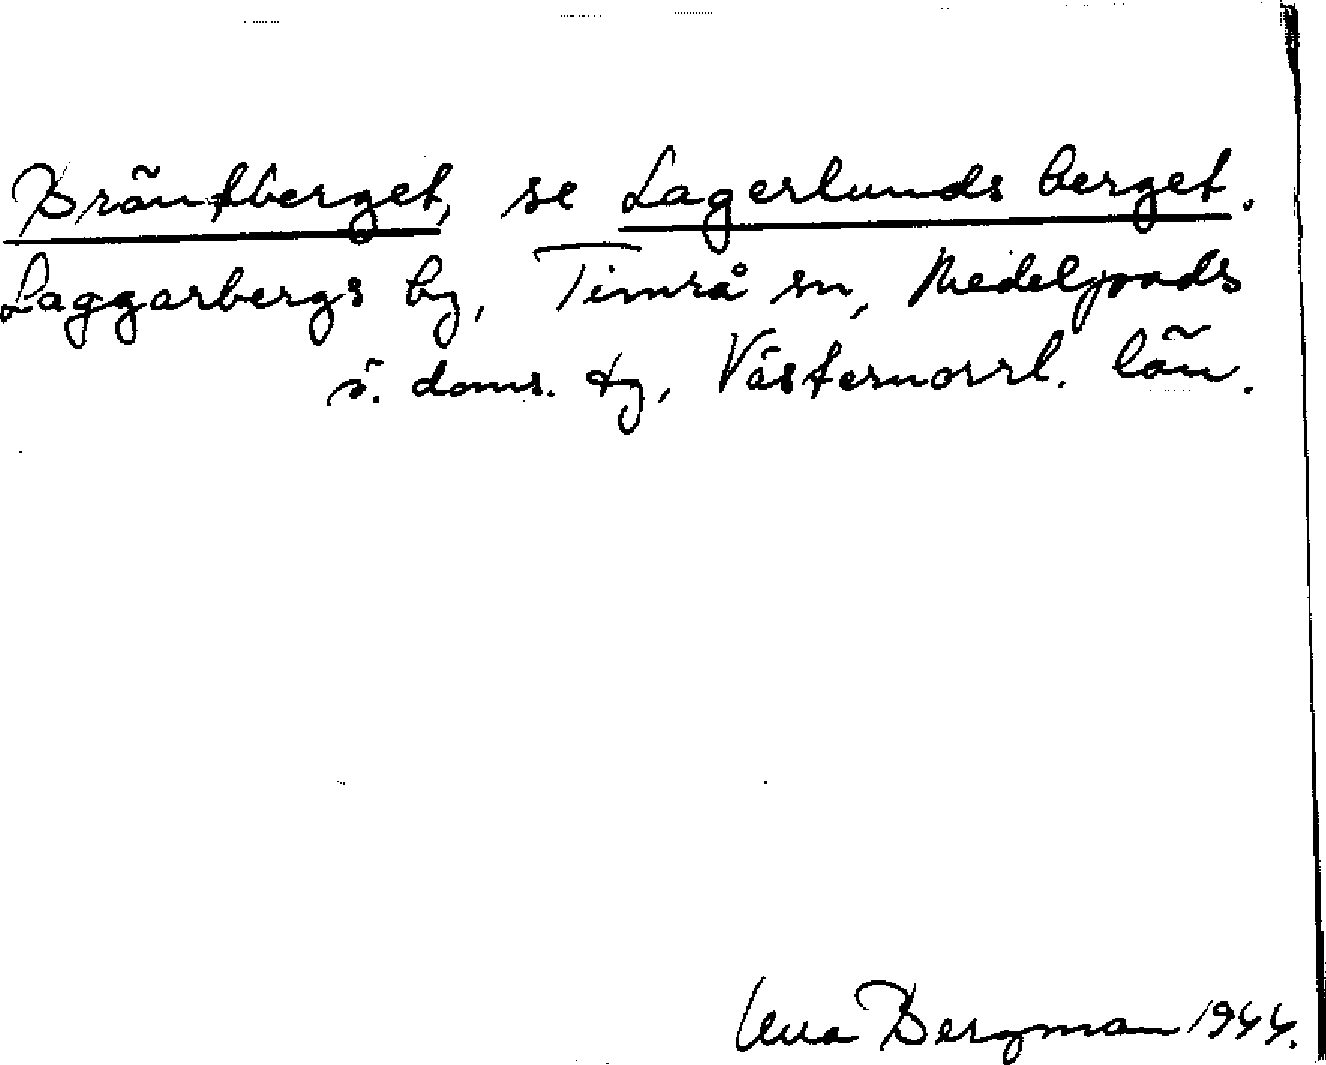 Bräntberget, se Lagerlundsberget.
Laggarbergs by, Timrå sn, Medelpads
ö. doms. tg, Västernorrl. län.
Bergman 1944.